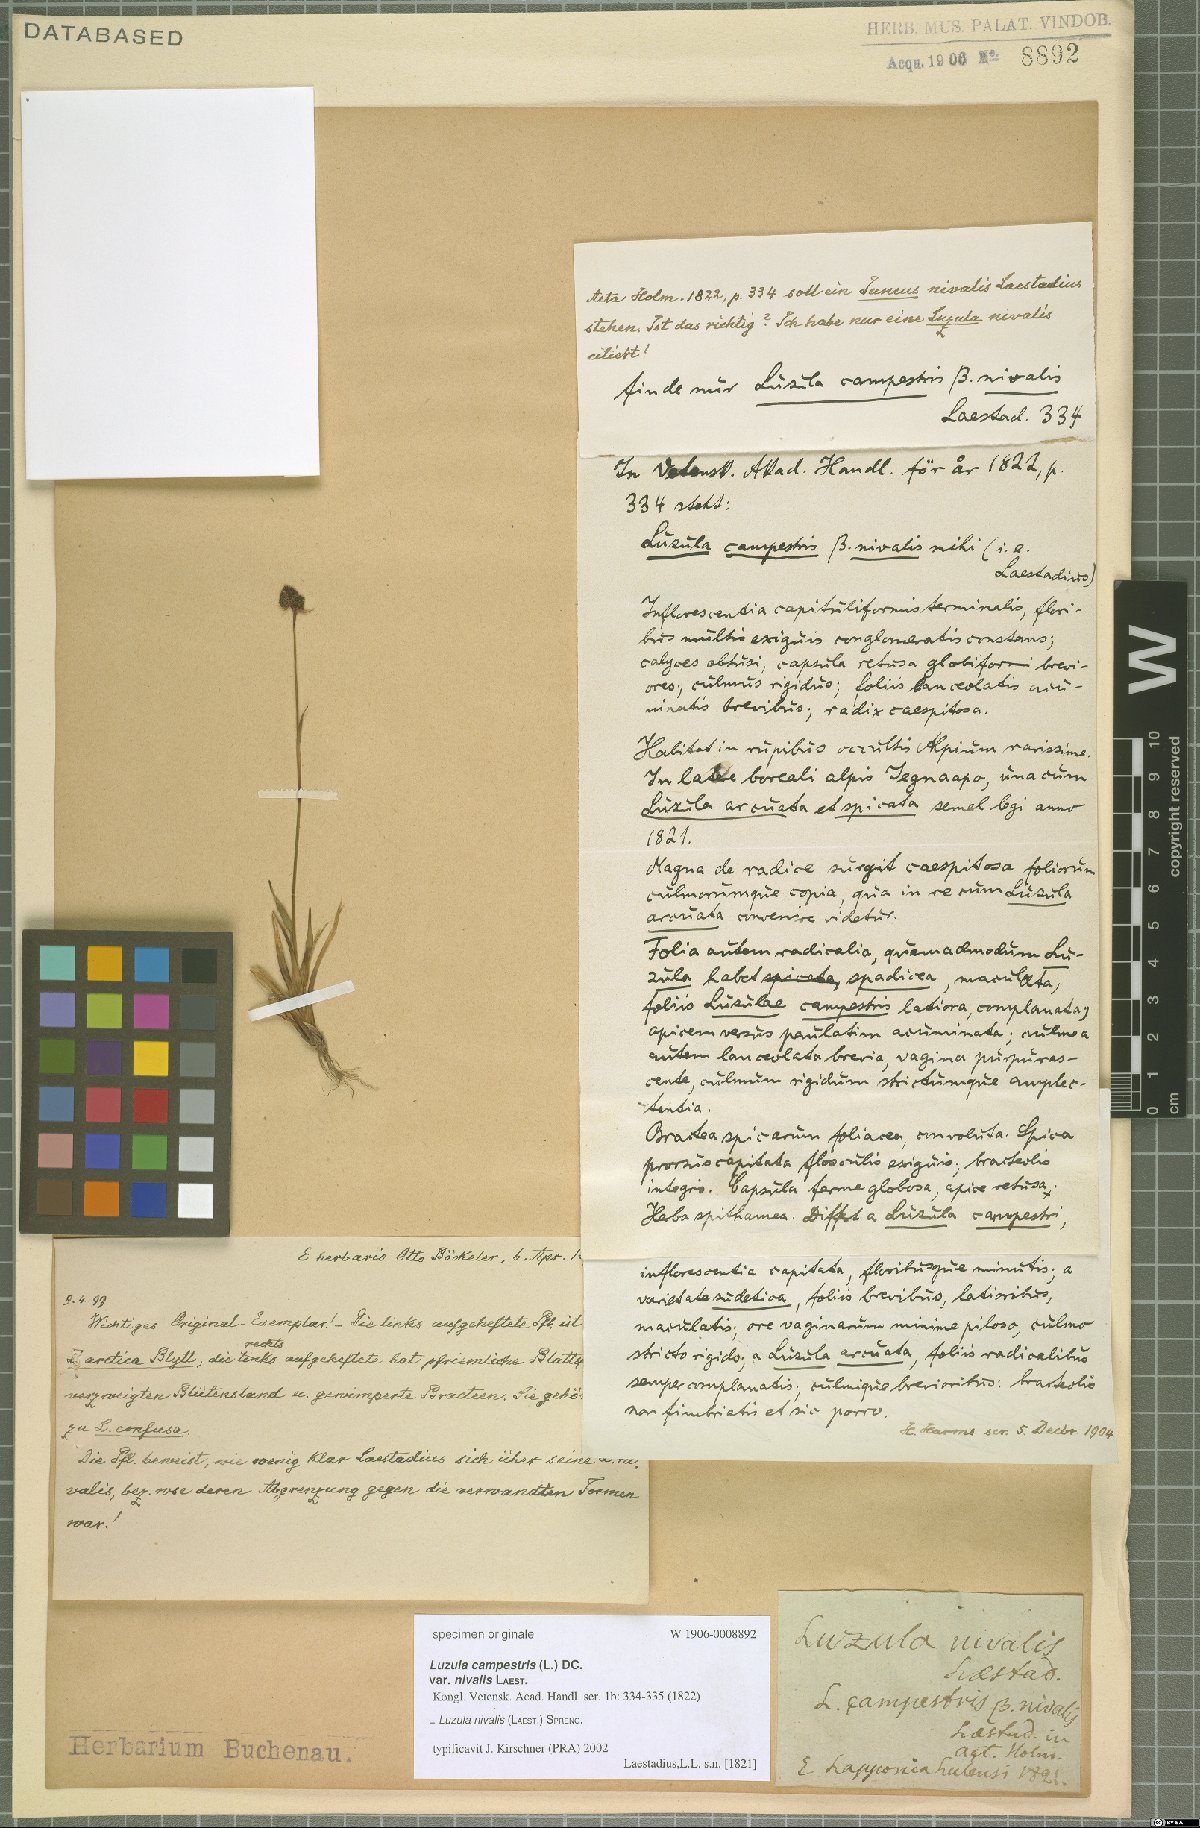 DATABASED
HERB. MUS. PALAT. VINDOB.
Acqu. 1906 No. 8892
Acta Holm. 1822, p. 334 soll ein Juncus nivalis Laestadius
stehen. Ist das richtig? Ich habe nur eine Luzula nivalis
citiert!
finde nur Luzula campestris β. nivalis
Laestad. 334
In Vetensk. Akad. Handl. för år 1822, p.
334 steht:
Luzula campestris β. nivalis mihi (i. e.
Laestadius)
Inflorescentia capituliformis terminalis, flori-
bus multis exiguis conglomeratis constans;
calyces obtusi, capsula retusa globiformi brevi-
ores; culmus rigidus; foliis lanceolatis acu-
minatis brevibus; radix caespitosa.
Habitat in rupibus occultis Alpium rarissime.
In latere boreali alpis Tegnaapo, una cum
Luzula arcuata et spicata semel legi anno
1821.
Magna de radice surgit caespitosa foliorum
culmorumque copia, qua in re cum Luzula
arcuata convenire videtur.
Folia autem radicalia, quemadmodum Lu-
zula habet spicata, spadicea, maculata,
foliis Luzulae campestris latiora, complanata,
apicem versus paulatim acuminata; culmea
autem lanceolata brevia, vagina purpures-
cente, culmum rigidum strictumque amplec-
tentia.
Bractea spicarum foliacea, convoluta. Spica
prorsus capitata flosculis exiguis; bracteolis
integris. Capsula ferme globosa, apice retusa.
Herba spithamea. Differt a Luzula campestri,
inflorescentia capitata, floribusque minutis; a
varietate sudetica, foliis brevibus, latioribus,
maculatis; ore vaginarum minime piloso, culmo
stricto rigido; a Luzula arcuata, foliis radicalibus
semper complanatis, culmique brevioribus: bracteolis
non fimbriatis et sic porro.
H. Harms scr. 5. Decbr 1904
E herbario Otto Böckeler, 6. Apr.
9. 4. 99
Wichtiges Original-Exemplar! - Die links aufgeheftete Pfl. ist
rechts
L. arctica Blytt; die links aufgeheftete hat pfriemliche Blatt
verzweigten Blütenstand u. gewimperte Bracteen. Sie gehö
zu L. confusa.
Die Pfl. beweist, wie wenig klar Laestadius sich über seine
valis, bez. wie deren Abgrenzung gegen die verwandten Formen
war!
specimen originale W 1906-0008892
Luzula campestris (L.) DC.
var. nivalis LAEST.
Kongl. Vetensk. Acad. Handl. ser. 1b: 334-335 (1822)
= Luzula nivalis (LAEST.) SPRENG.
typificavit J. Kirschner (PRA) 2002
Laestadius,L.L. s.n. [1821]
Luzula nivalis
Læstad.
L. campestris β. nivalis
Læstad. in
act. Holm.
E Lapponia Lulensi 1821.
Herbarium Buchenau.
W
0 1 2 3 4 5 6 7 8 9 10
cm
copyright reserved